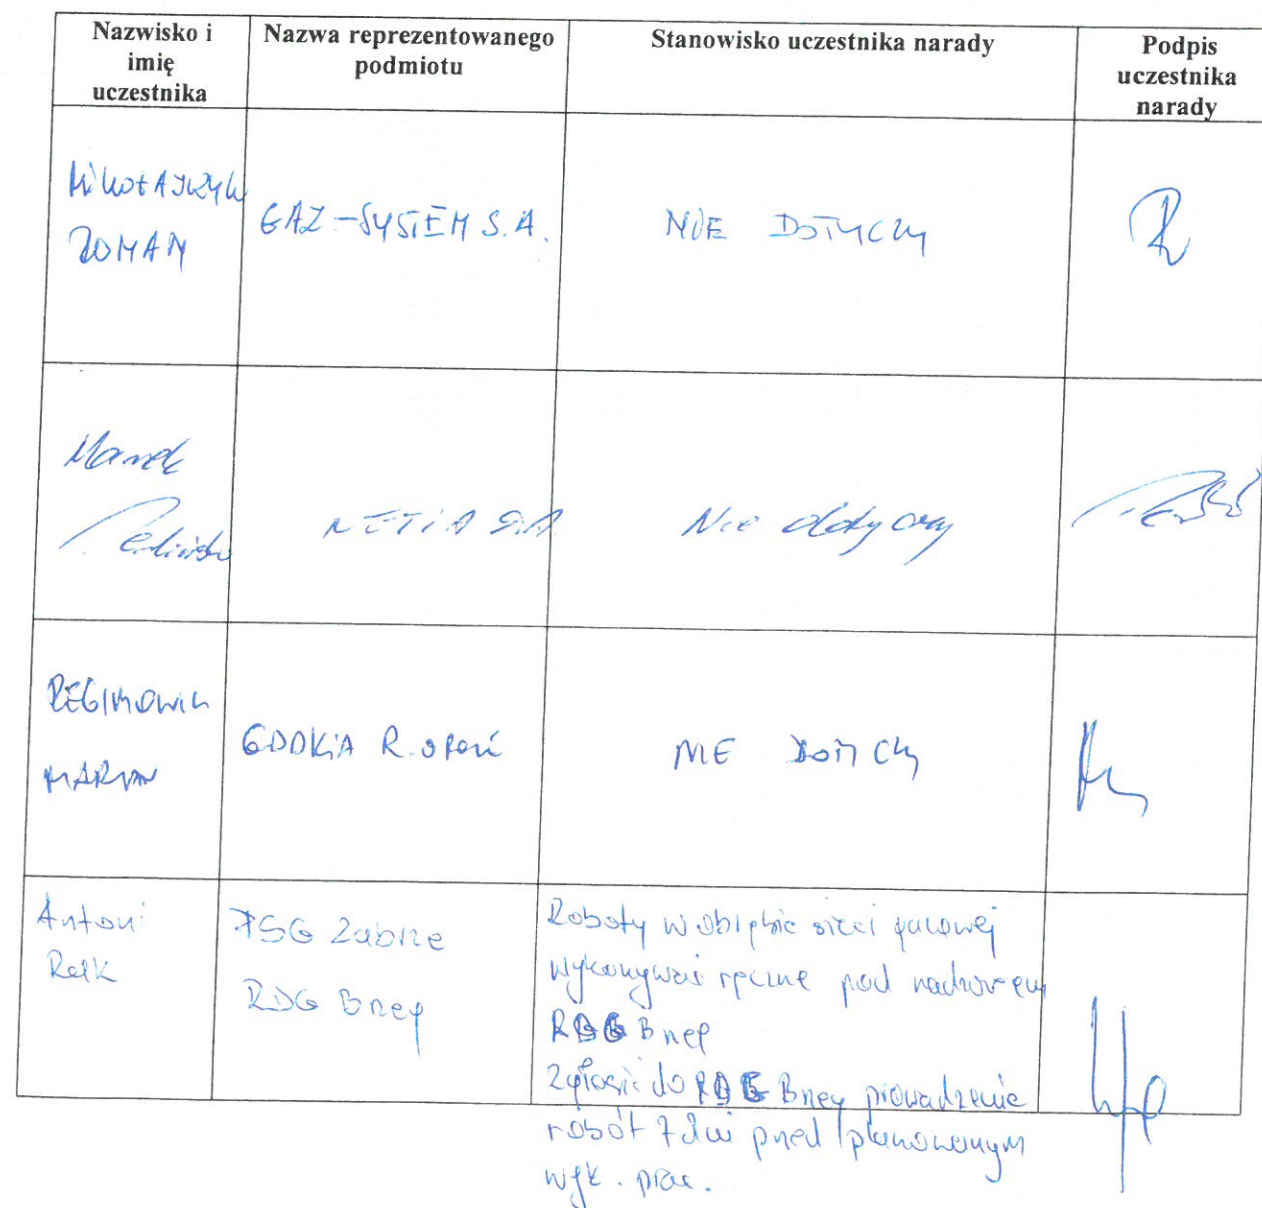 Nazwisko i
imię
uczestnika
Nazwa reprezentowanego
podmiotu
Stanowisko uczestnika narady
Podpis
uczestnika
narady
MIKOŁAJCZYK
ROMAN
GAZ-SYSTEM S.A.
NIE DOTYCZY
Marek
NETIA S.A.
Nie dotyczy
MARIAN
GDDKiA R. OPOLE
NIE DOTYCZY
Antoni
Relk
PSG Zabrze
RDG Brzeg
Roboty w obrębie sieci gazowej
wykonywać ręcznie pod nadzorem
RDG Brzeg
Zgłosić do RDG Brzeg prowadzenie
robót 7 dni przed planowanym
wyk. prac.